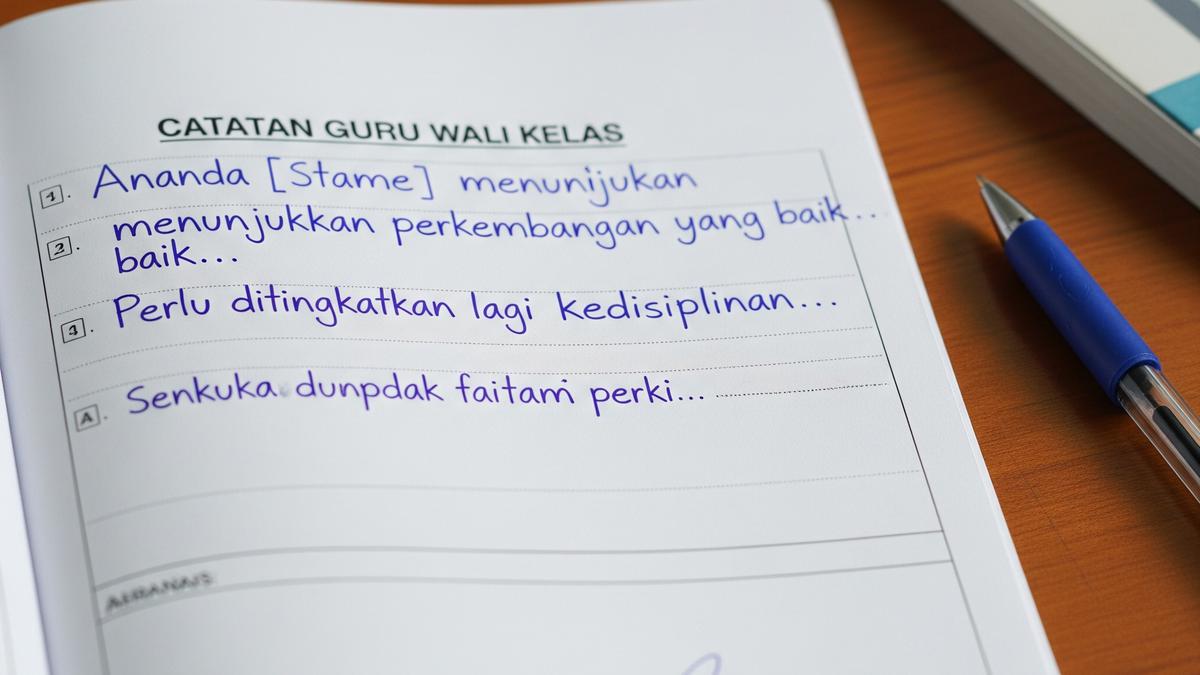 CATATAN GURU WALI KELAS
1. Ananda [Stame] menunijukan
2. menunjukkan perkembangan yang baik...
baik...
3. Perlu ditingkatkan lagi kedisiplinan...
A. Senkuka dunpdak faitam perki...